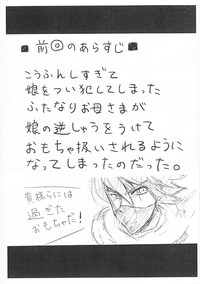 ■前◎のあらすじ■
こうふんしすぎて
娘をつい犯してしまった
ふたなりお母さまが
娘の逆しゅうをうけて
おもちゃ扱いされるように
なってしまったのだった。
貴様らには
過ぎた
おもちゃだ!